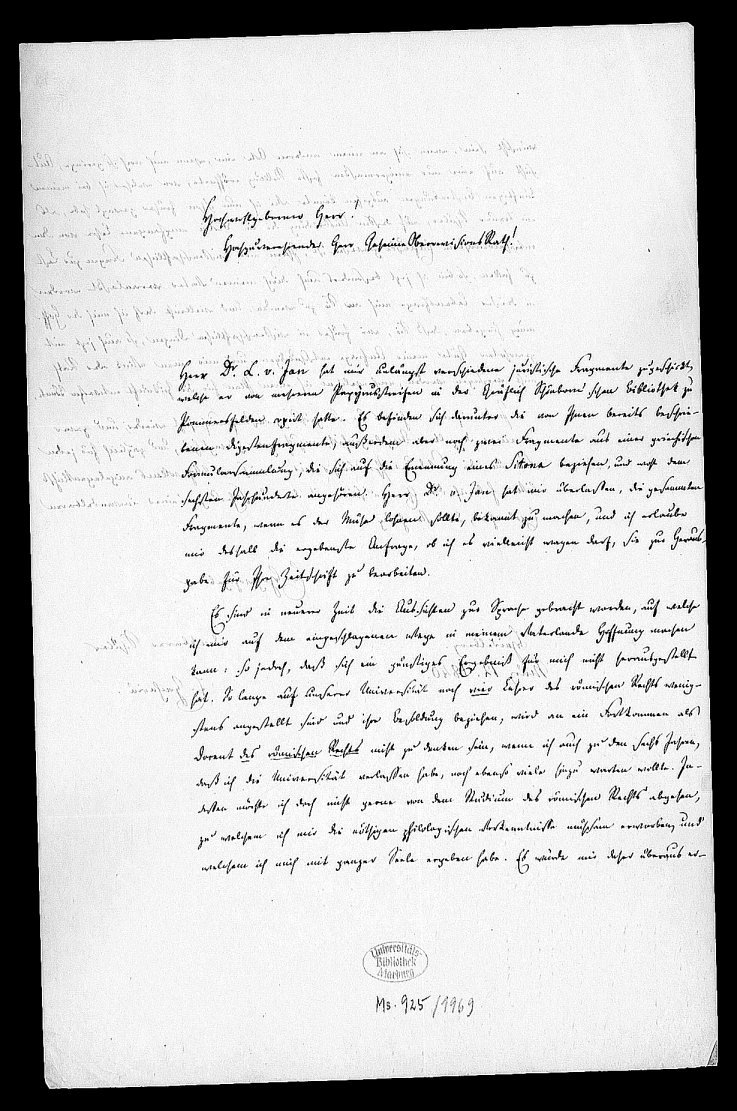 Hochwohlgeborner Herr!
Hochzuverehrender Herr Geheime OberrevisionsRath!
Herr Dr. L. v. Jan hat mir unlängst verschiedene juristische Fragmente zugeschickt,
welche er von mehreren Papyrusstreifen in der Gräflich Schönborn'schen Bibliothek zu
Pommersfelden copirt hatte. Es befinden sich darunter die von Ihnen bereits beschrie-
benen Digestenfragmente, außerdem aber noch zwei Fragmente aus einer griechischen
Formularsammlung, die sich auf die Ernennung eines Sitona beziehen, und wohl dem
sechsten Jahrhunderte angehören. Herr Dr. v. Jan hat mir überlassen, die gesammten
Fragmente, wenn es der Mühe lohnen sollte, bekannt zu machen, und ich erlaube
mir deshalb die ergebenste Anfrage, ob ich es vielleicht wagen darf, sie zur Heraus-
gabe für Ihre Zeitschrift zu bearbeiten.
Es sind in neuerer Zeit die Aussichten zur Sprache gebracht worden, auf welche
ich mir auf dem eingeschlagenen Wege in meinem Vaterlande Hoffnung machen
kann: so jedoch, daß sich ein günstiges Ergebniß für mich nicht herausgestellt
hat. So lange auf unserer Universität noch vier Lehrer des römischen Rechts wenig-
stens angestellt sind und ihre Besoldung beziehen, wird an ein Fortkommen als
Docent des römischen Rechts nicht zu denken sein, wenn ich auch zu den sechs Jahren,
daß ich die Universität verlassen habe, noch ebenso viele hinzu warten wollte. In-
dessen möchte ich doch nicht gerne von dem Studium des römischen Rechts abgehen,
zu welchem ich mir die nöthigen philologischen Vorkenntnisse mühsam erworben, und
welchem ich mich mit ganzer Seele ergeben habe. Es würde mir daher überaus er-
Universitäts-
Bibliothek
Marburg
Ms. 925/1969